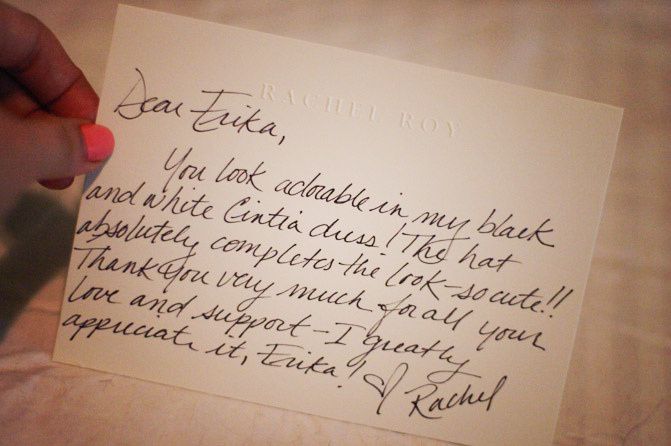 RACHEL ROY
Dear Erika,
You look adorable in my black
and white Cintia dress! The hat
absolutely completes the look - so cute!!
Thank you very much for all your
love and support - I greatly
appreciate it, Erika! ♡ Rachel